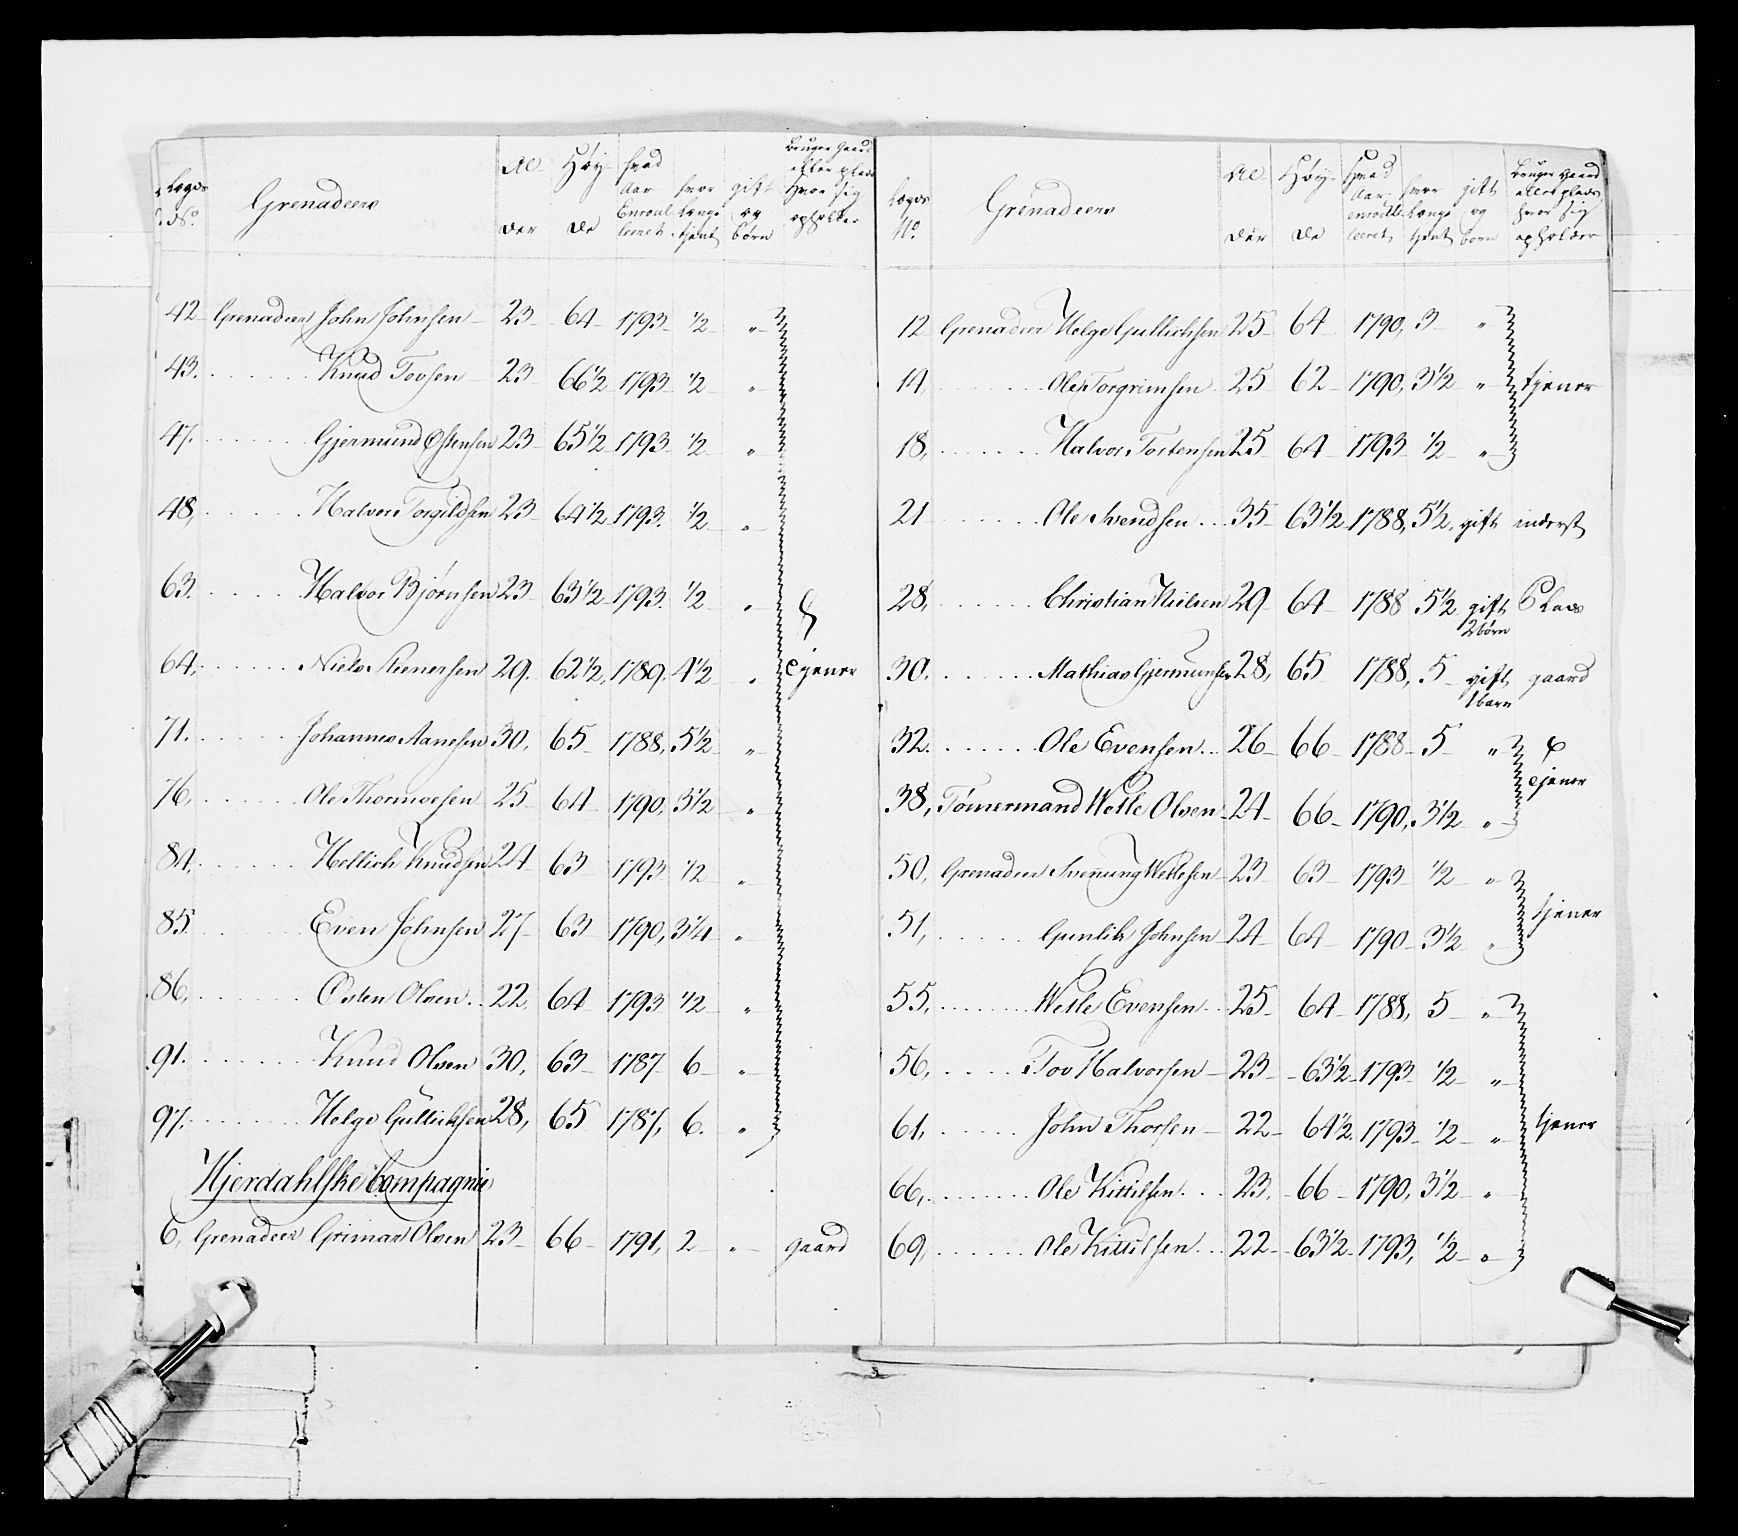 Lægds No. Grenadeers Al- der Høy- de hvad Aar Enroul- leeret hvor længe tjent gift og børn Bruger Gaard eller plads hvor sig opholder
42 Grenadeer John Johnsen 23 64 1793 ½ „
43. Knud Tovsen 23 66½ 1793 ½ „
47. Gjermund Østensen 23 65½ 1793 ½ „
48, Halvor Torgildsen 23 64½ 1793. ½ „
63. Halvor Bjørnsen 23 63½ 1793. ½ „
64, Niels Stenersen 29. 62½, 1789. 4½ „ tjener
71. Johannes Aanesen 30, 65 1788, 5½ „
76, Ole Thormoesen 25 64 1790, 3½ „
84, Hellich Knudsen 24 63 1793 ½ „
85. Even Johnsen 27 63 1790, 3¼ „
86, Østen Olsen 22, 64 1793 ½ „
91. Knud Olsen 30, 63 1787 6 „
97. Helge Gullichsen 28, 65 1787, 6. „
Hjerdahlske Compagnie
6, Grenadeer Grimar Olsen 23 66 1791, 2 „ gaard
Lægds No. Grenadeers Al- der Høy- de hvad Aar enroul- leeret hvor længe tjent gift og børn Bruger gaard eller plads hvor sig opholder
12 Grenadeer Helge Gullichsen 25 64 1790, 3 „
14, Ole Torgrimsen 25 62 1790, 3½ „ tjener
18, Halvor Tostensen 25 64 1793 ½ „
21 Ole Svendsen 35 63½ 1788, 5½, gift inderst
28, Christian Nielsen 29 64 1788 5½ gift 2 børn Plads
30. Mathias Gjermunsen 28, 65 1788, 5 gift 1 barn gaard
32. Ole Evensen 26 66 1788 5 „
tjener
38, Tømermand Wetle Olsen 24 66 1790, 3½ „
50, Grenadeer Svenung Wetlesen 23 63 1793 ½ „
tjener
51, Gunlik Johnsen 24 64 1790 3½ „
55, Wetle Evensen 25 64 1788, 5 „
56, Tov Halvorsen 23 63½ 1793 ½ „
61, John Thorsen 22 64½ 1793 ½ „ tjener
66, Ole Kittilsen 23, 66 1790, 3½ „
69, Ole Kittilsen 22 63½ 1793, ½ „